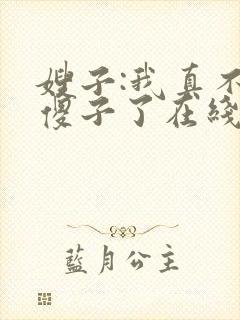 嫂子:我真不
傻子了在綫
藍月公主